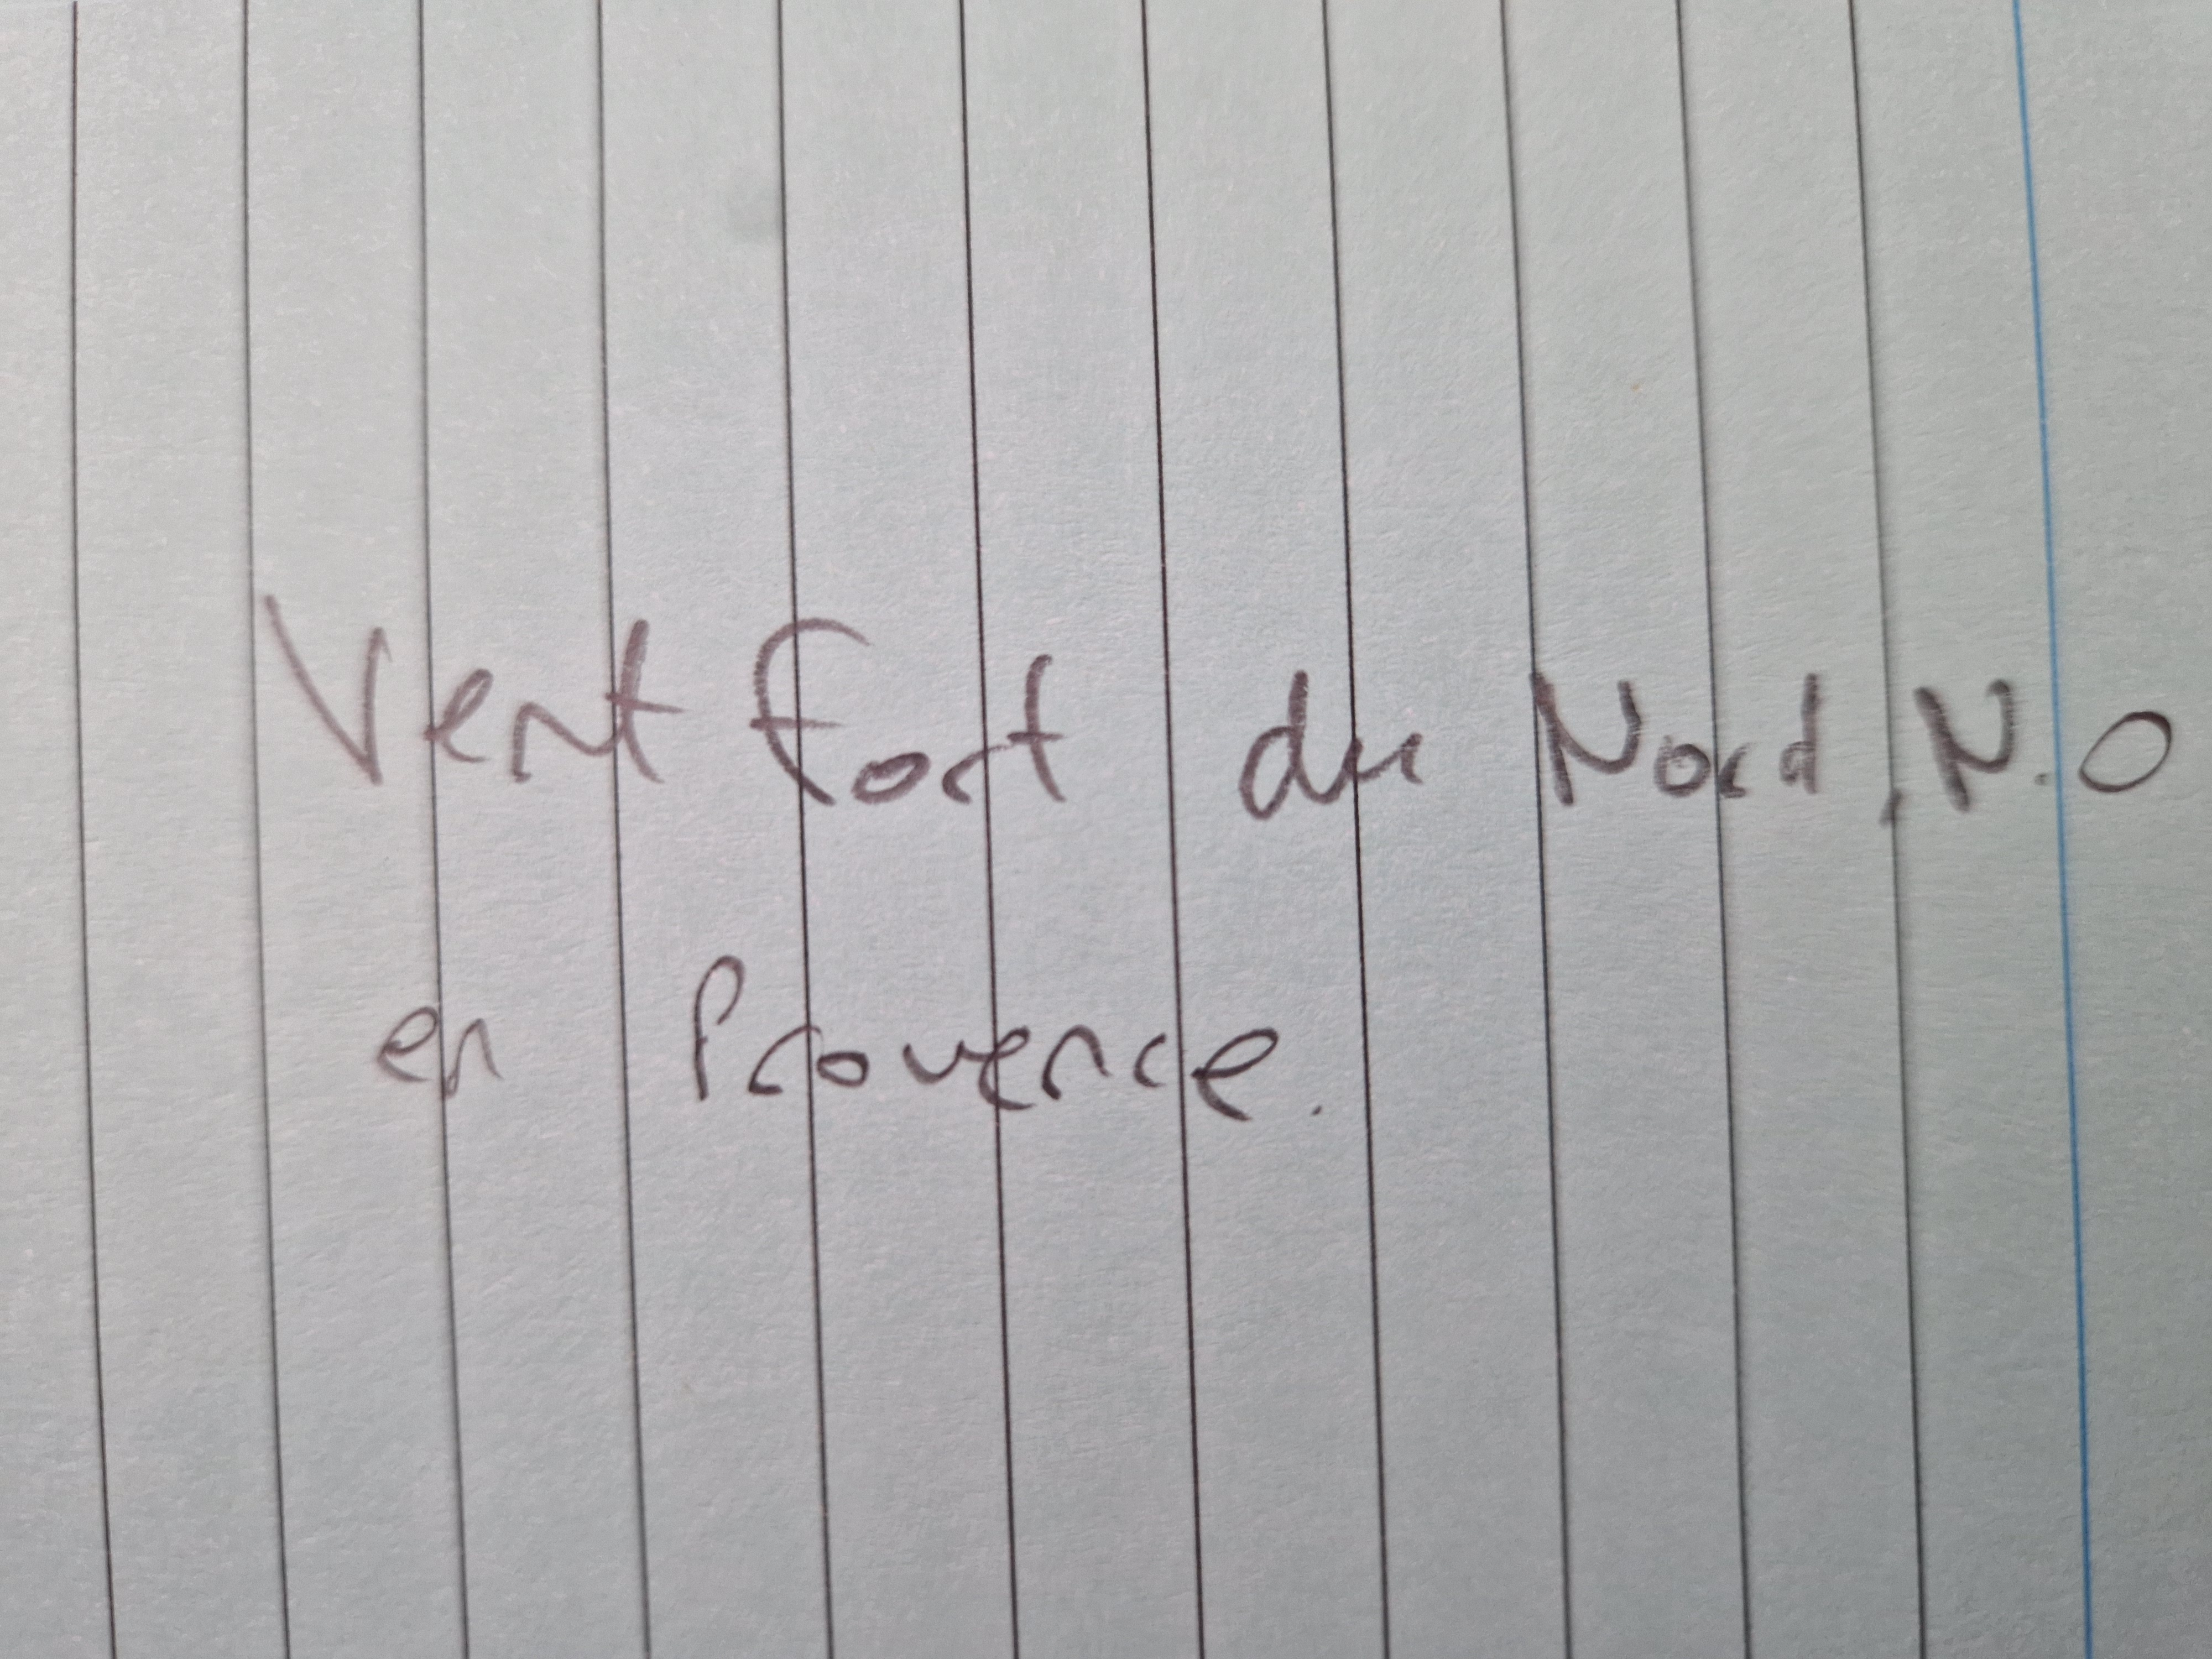 Vent fort du Nord, N.O
en Provence.